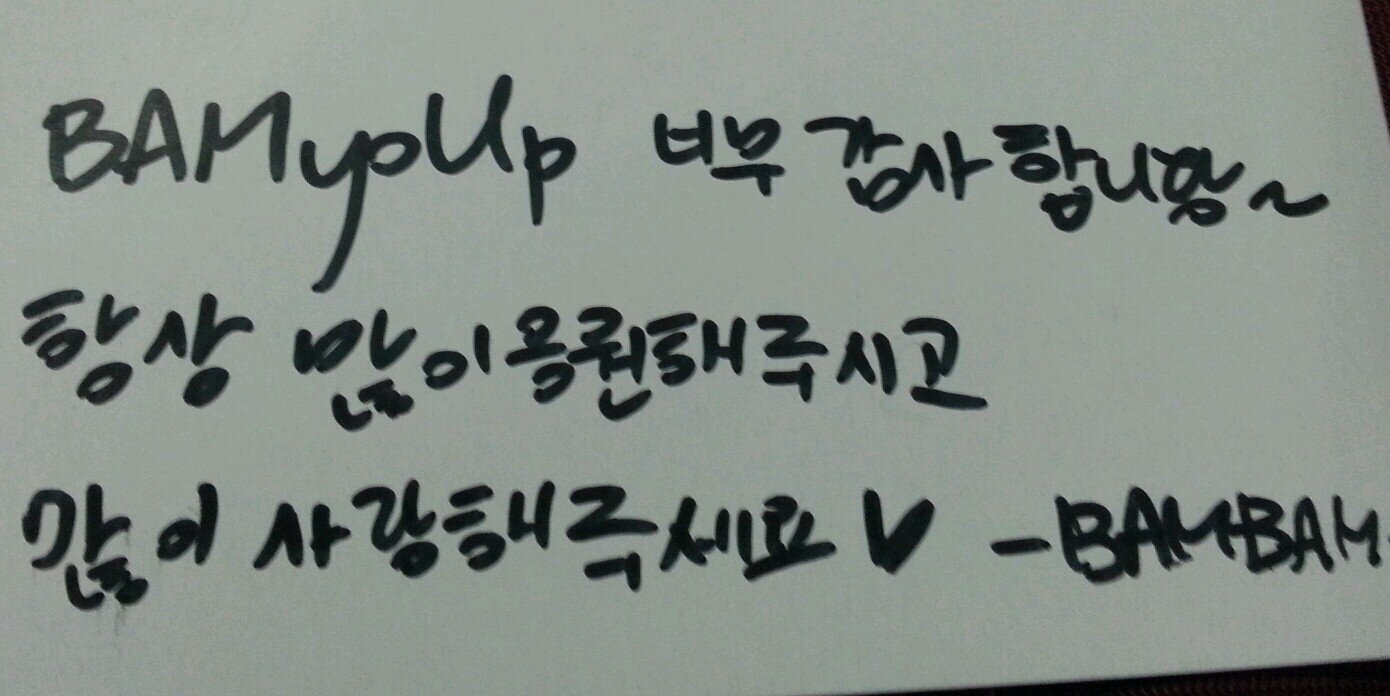 BAMyoUp 너무 감사합니당~
항상 많이 응원해주시고
많이 사랑해주세요♥ -BAMBAM